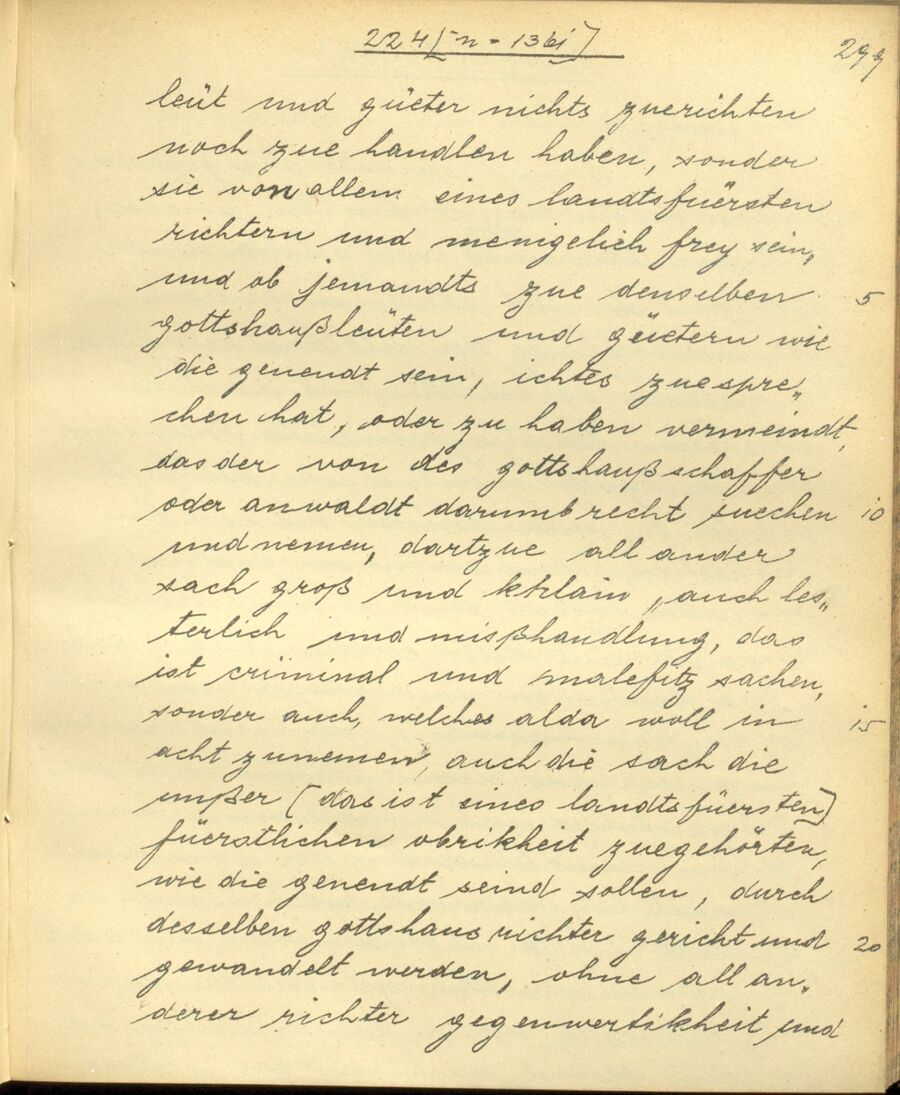 224[n-136i]
299
leüt und güeter nichts zuerichten
noch zue handlen haben, sonder
sie von allem eines landtsfuërsten
richtern und menigelich frey sein,,
und ob jemandts zue denselben
5
gottshaußleüten und güetern wie
die genendt sein, ichtes zuespre,,
chen hat, oder zu haben vermeindt,
das der von des gottshaußschaffer
oder anwaldt darumb recht suechen
10
und nemen, dartzue all ander
sach groß und khlain, auch les,,
terlich und mißhandlung, das
ist criminal und malefitz sachen,
sonder auch, welches alda woll in
15
acht zunemen, auch die sach die
unßer [das ist eines landtsfüersten]
füerstlichen obrikheit zuegehörten,
wie die genendt seind sollen, durch
desselben gottshaus richter gericht und
20
gewandelt werden, ohne all an,,
derer richter gegenwertikheit und